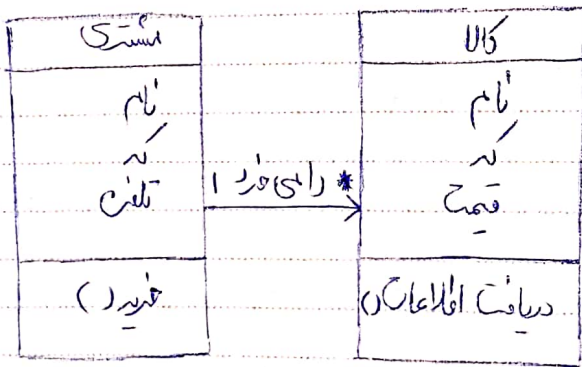 مشتری
نام
کد
تلفن
خرید()
1 را می خرد *
کالا
نام
کد
قیمت
دریافت اطلاعات()